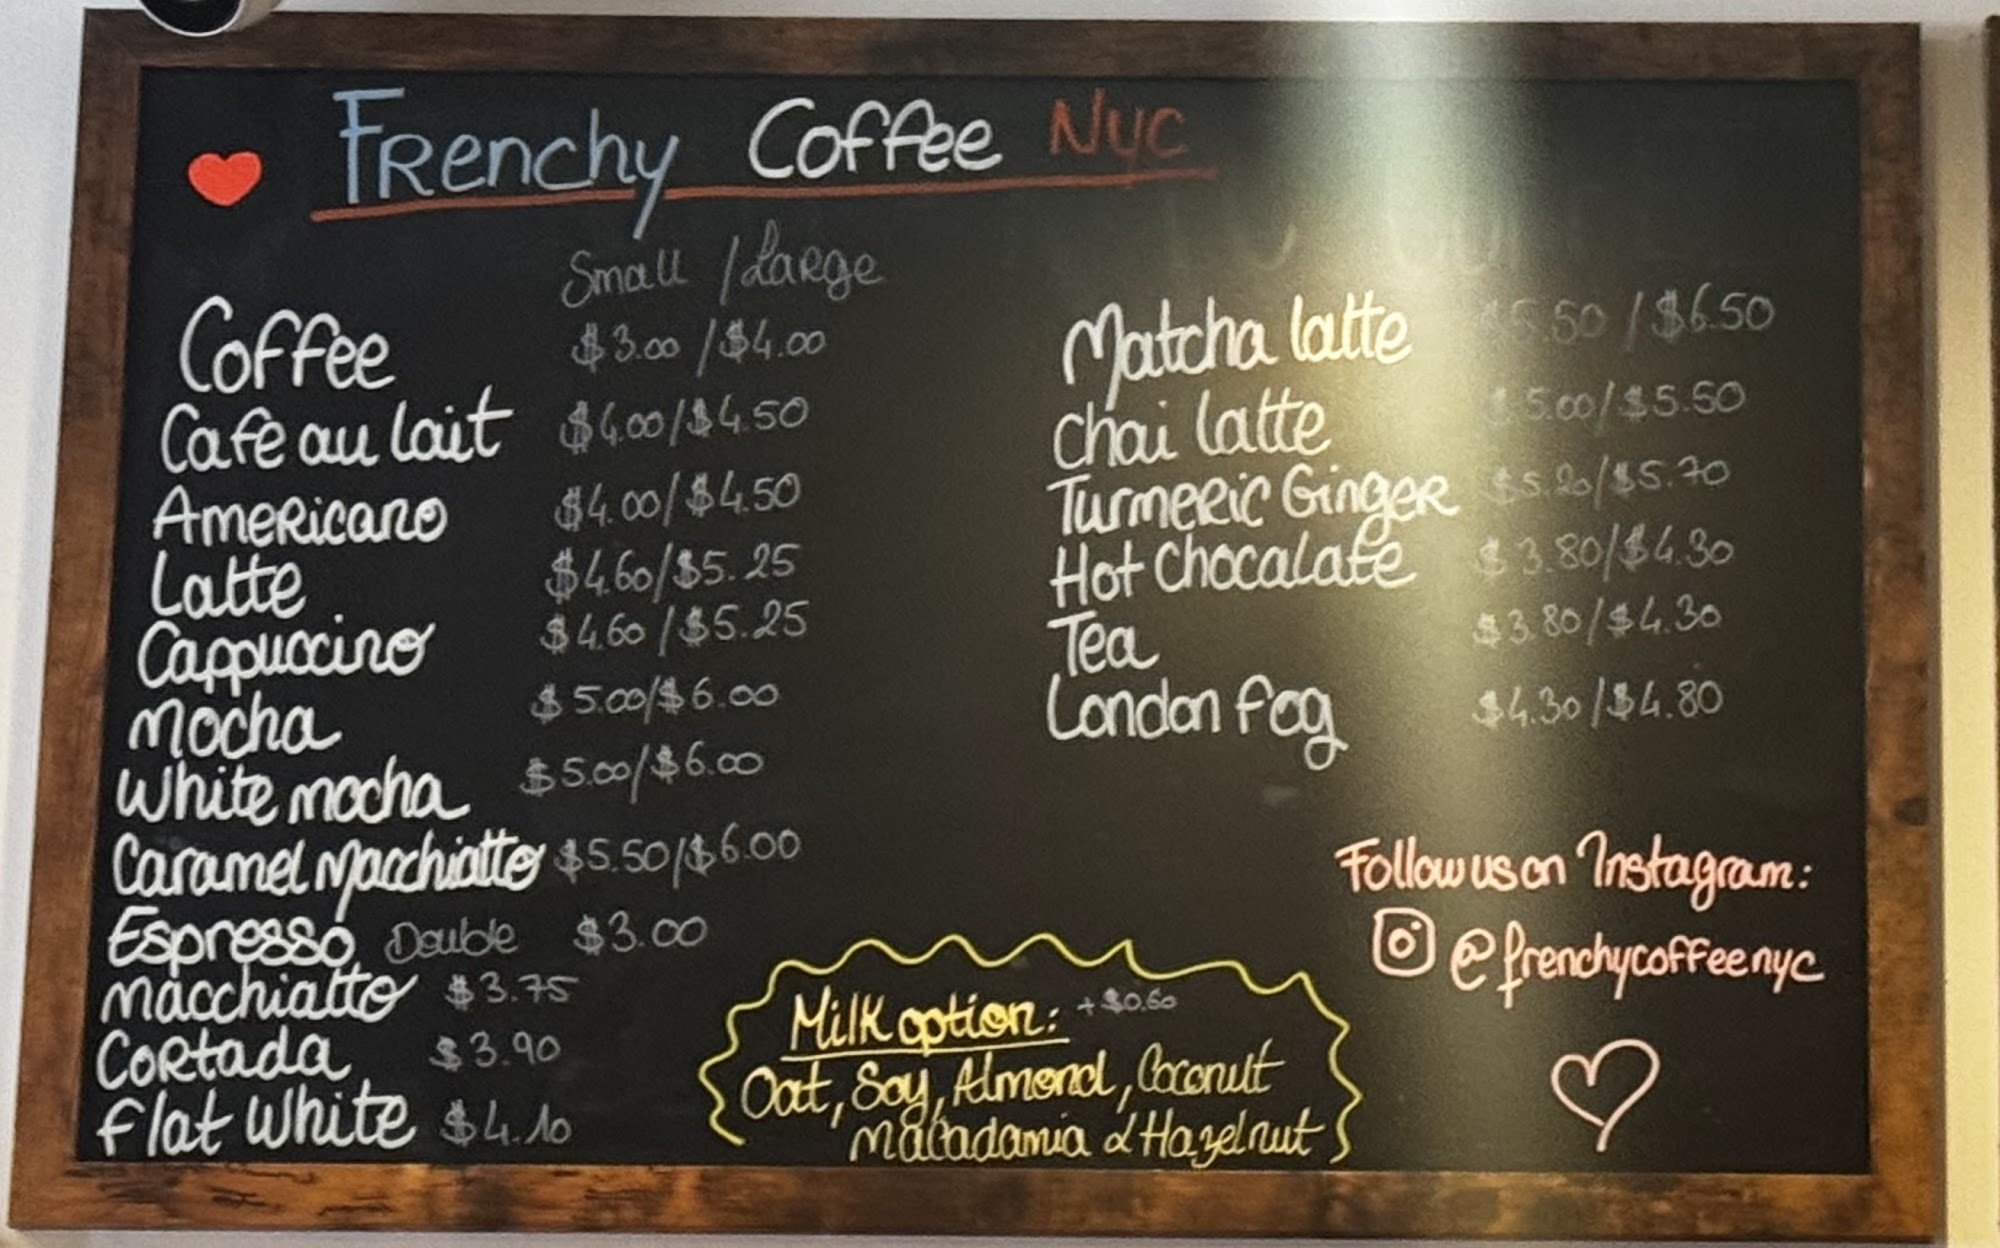 Frenchy Coffee Nyc
Small / Large
Coffee $3.00 / $4.00
Cafe au lait $4.00/$4.50
Americano $4.00/$4.50
Latte $4.60/$5.25
Cappuccino $4.60/$5.25
Mocha $5.00/$6.00
White mocha $5.00/$6.00
Caramel Macchiatto $5.50/$6.00
Espresso Double $3.00
Macchiatto $3.75
Cortada $3.90
Flat White $4.10
Matcha latte $5.50 / $6.50
Chai latte $5.00/$5.50
Turmeric Ginger $5.20/$5.70
Hot Chocalate $3.80/$4.30
Tea $3.80/$4.30
London Fog $4.30/$4.80
Milk option: +$0.60
Oat, Soy, Almond, Coconut
Macadamia & Hazelnut
Follow us on Instagram:
@frenchycoffeenyc